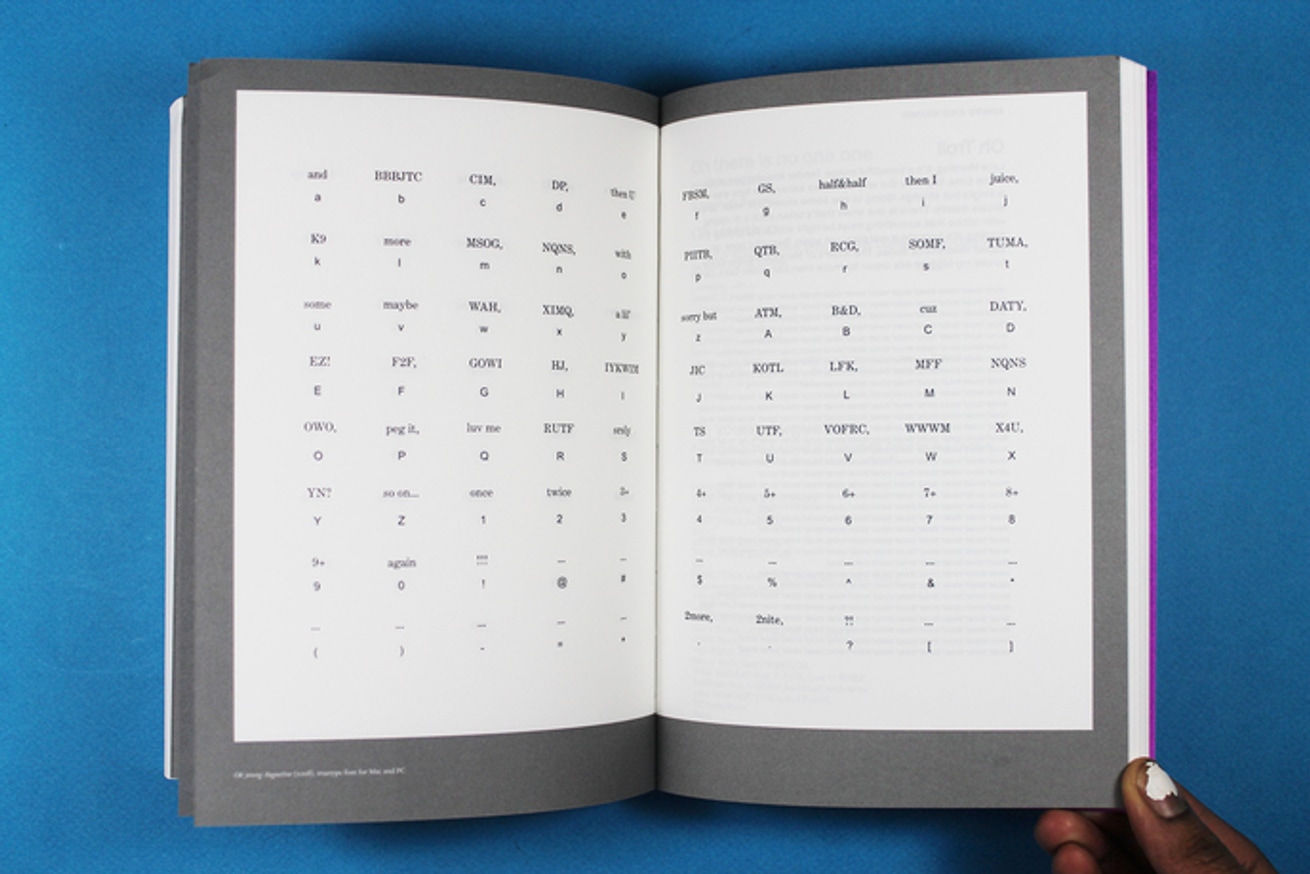 and BBBJTC CIM, DP, then U
a b c d e
K9 more MSOG, NQNS, with
k l m n o
some maybe WAH, XIMQ, a lil'
u v w x y
EZ! F2F, GOWI HJ, IYKWIM
E F G H I
OWO, peg it, luv me RUTF srsly
O P Q R S
YN? so on... once twice 3+
Y Z 1 2 3
9+ again !!!! ... ...
9 0 ! @ #
... ... ... ... ...
( ) - = "
Oh young Augustine (2008), truetype font for Mac and PC
FBSM, GS, half&half then I juice,
f g h i j
PIITB, QTB, RCG, SOMF, TUMA,
p q r s t
sorry but ATM, B&D, cuz DATY,
z A B C D
JIC KOTL LFK, MFF NQNS
J K L M N
TS UTF, VOFRC, WWWM X4U,
T U V W X
4+ 5+ 6+ 7+ 8+
4 5 6 7 8
... ... ... ... ...
$ % ^ & *
2more, 2nite, ?! ... ...
, . ? [ ]